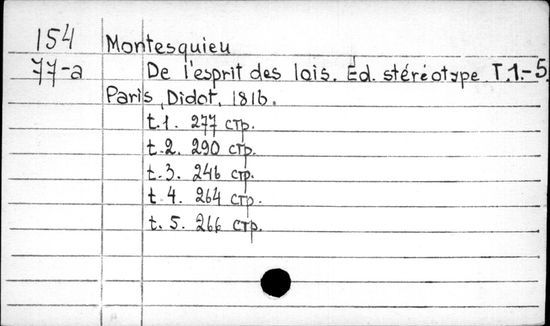 154 Montesquieu
77-a De l'esprit des lois. Ed. stéréotype T.1.-5.
Paris, Didot, 1816.
t.1. 277 стр.
t.2. 290 стр.
t.3. 246 стр.
t.4. 264 стр.
t.5. 266 стр.